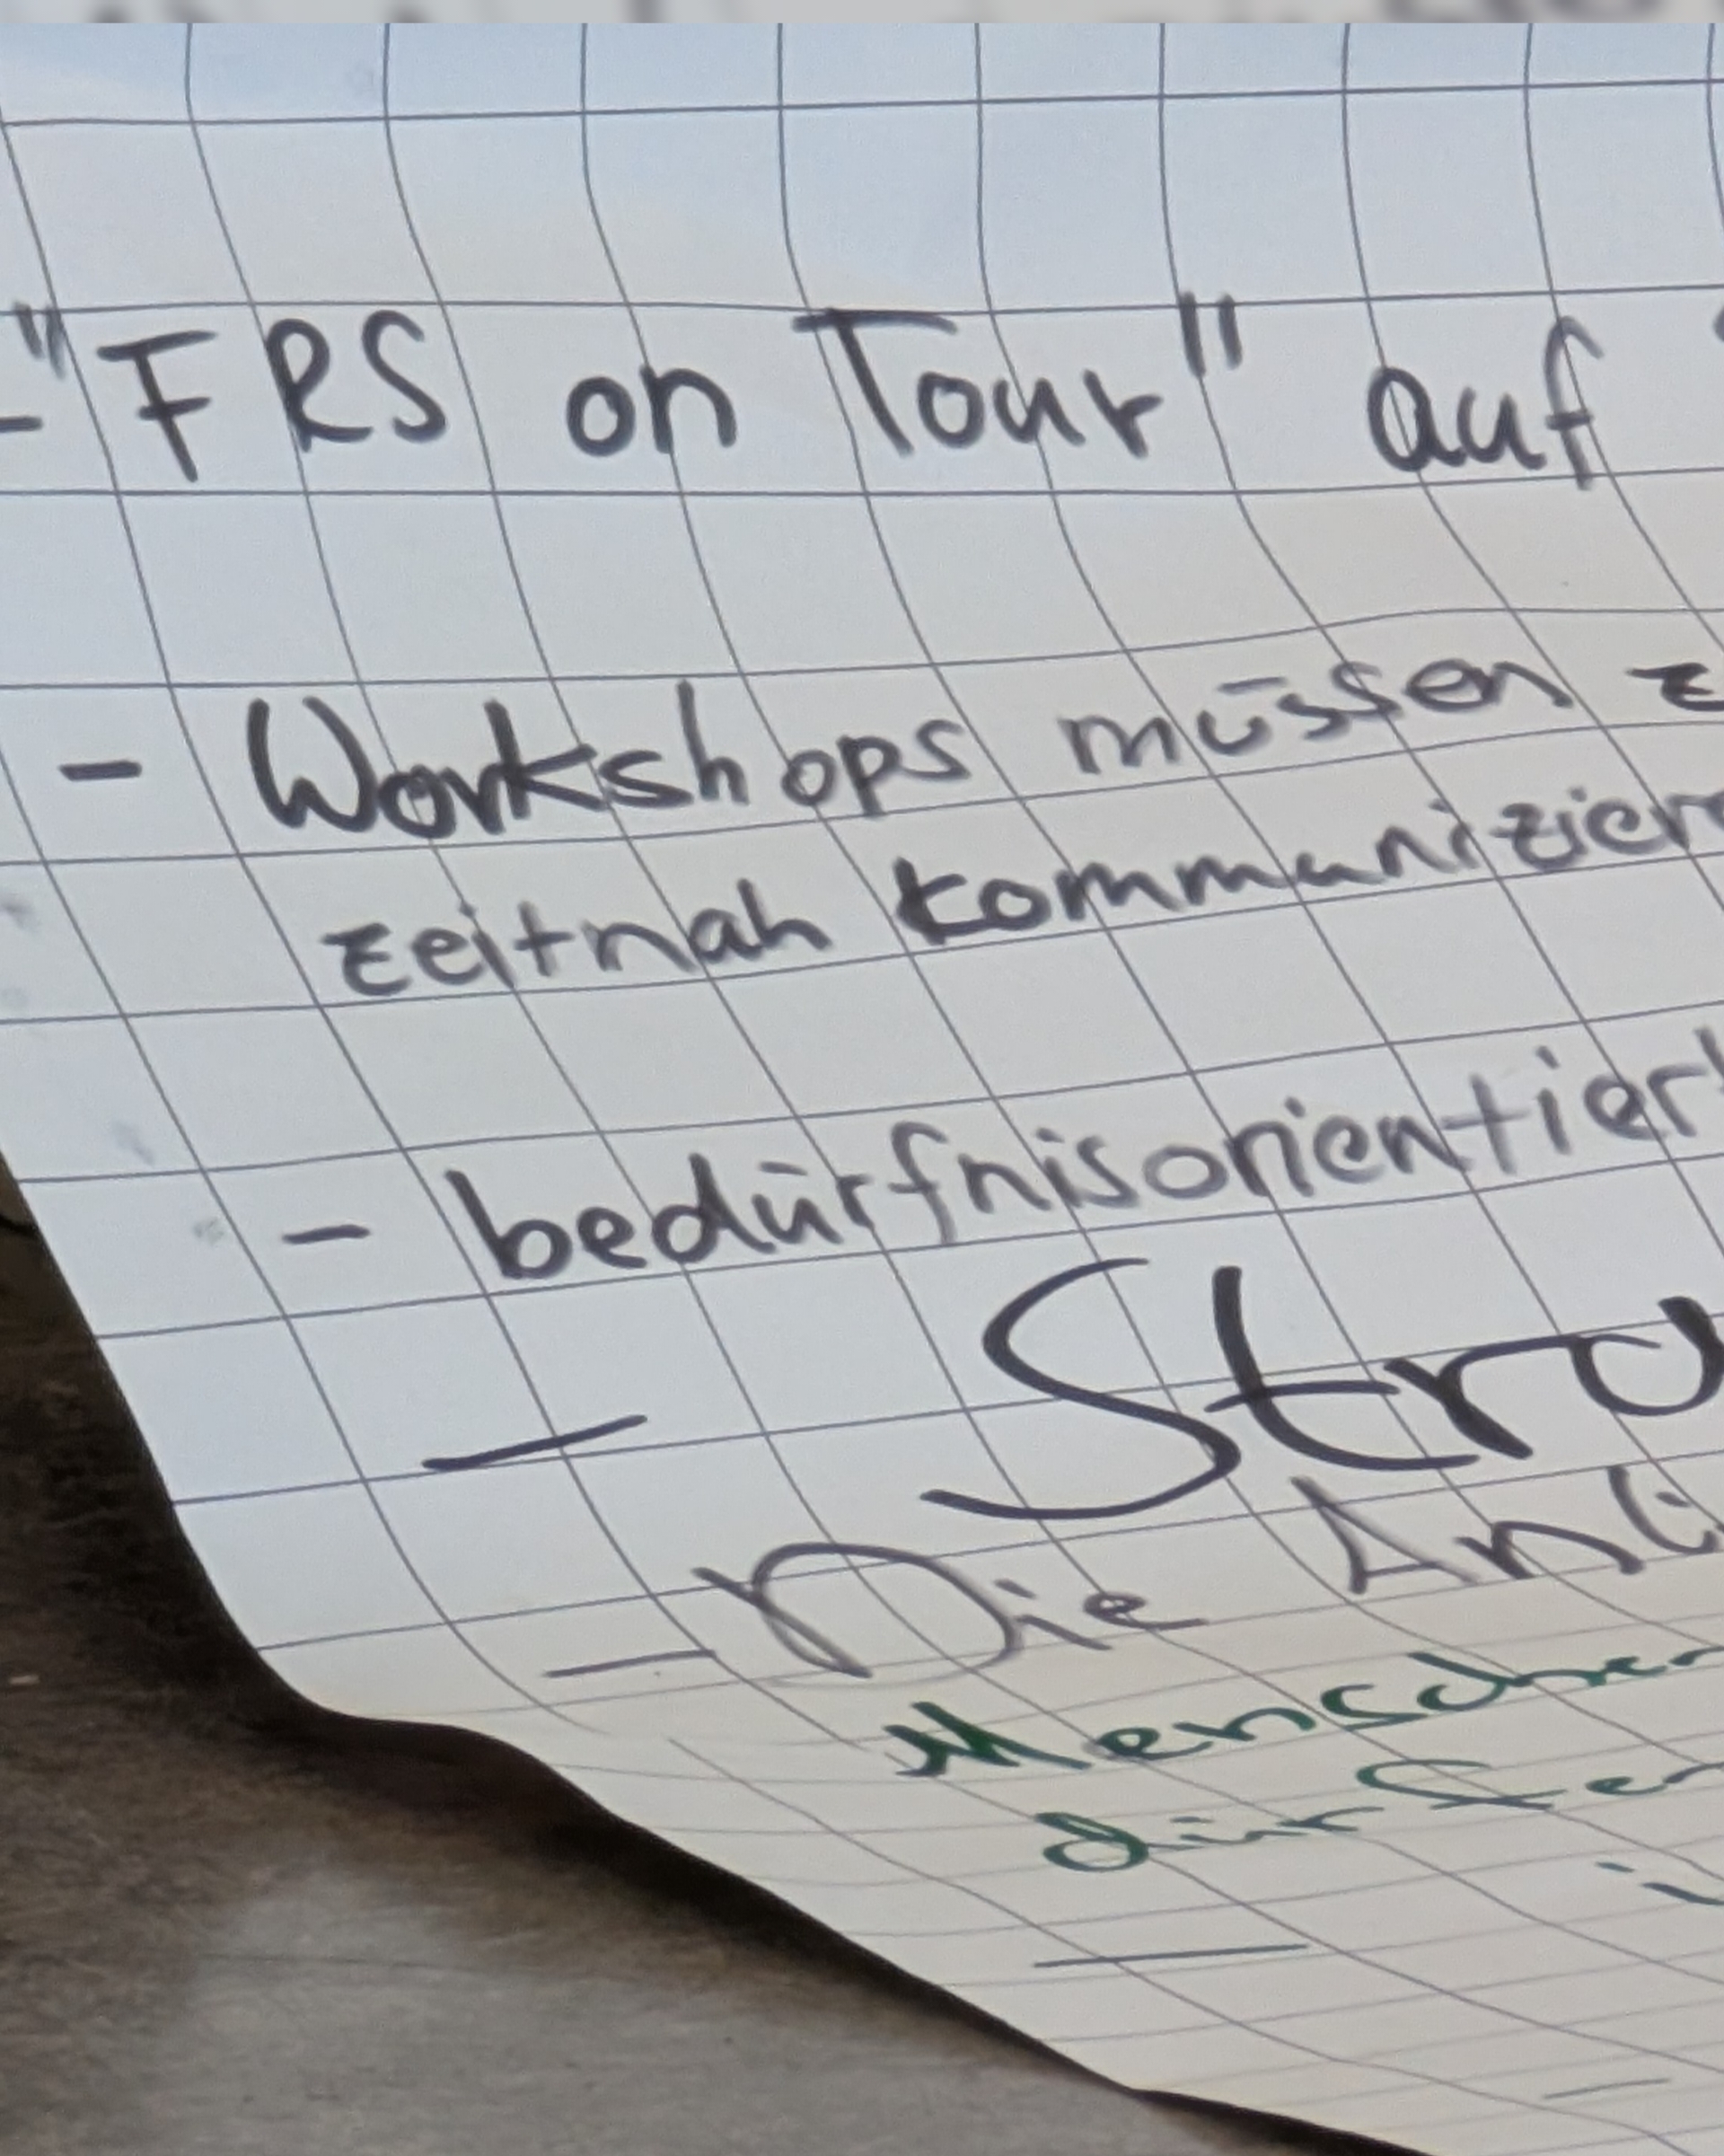 - "FRS on Tour" auf
- Workshops müssen
zeitnah kommunizier
- bedürfnisorientiert
-
- Die
Menschen
dürfen
-